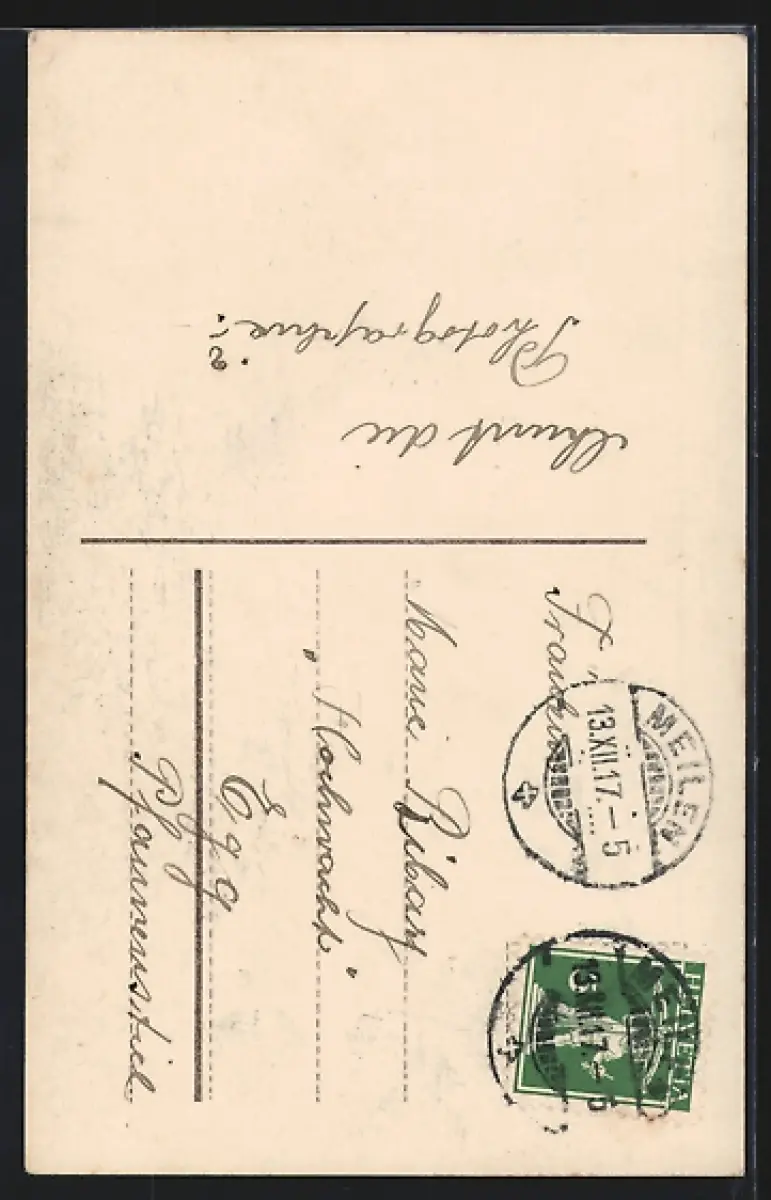 chunt die
Photographie?
?
MEILEN
13.XII.17.–5
HELVETIA
13.XII.17.–5
Fräulein
Marie
„Hochwacht“
Egg
Pfannenstiel